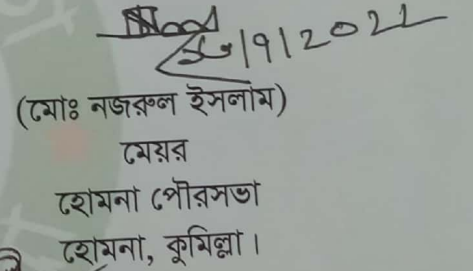 (মোঃ নজরুল ইসলাম)
মেয়র
হোমনা পৌরসভা
হোমনা, কুমিল্লা।